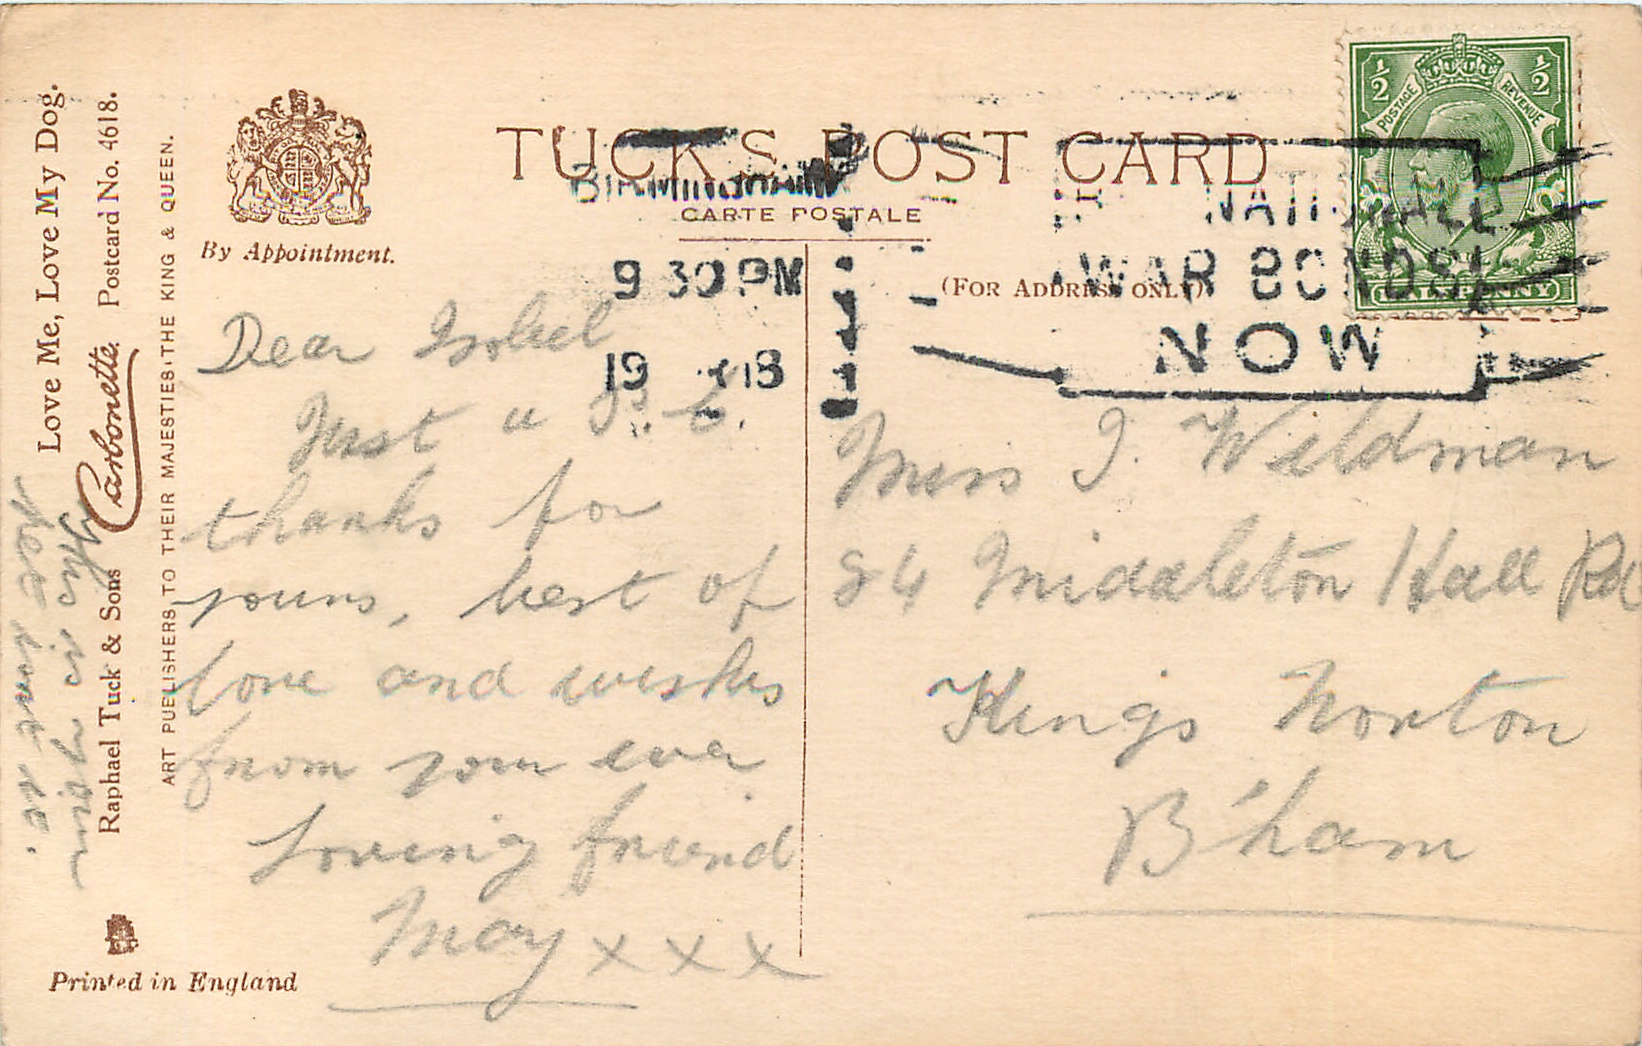 Love Me, Love My Dog.
Carbonette. Postcard No. 4618.
Raphael Tuck & Sons
ART PUBLISHERS TO THEIR MAJESTIES THE KING & QUEEN.
By Appointment.
Printed in England
TUCK'S POST CARD
CARTE POSTALE
(FOR ADDRESS ONLY)
BIRMINGHAM
9 30 PM
19 18
NATIONAL
WAR BONDS
NOW
½ ½
POSTAGE REVENUE
HALFPENNY
Dear Isobel
Just a P.C.
thanks for
yours, best of
love and wishes
from your ever
loving friend
May x x x
Miss I. Wildman
84 Middleton Hall Rd
Kings Norton
B'ham
is your